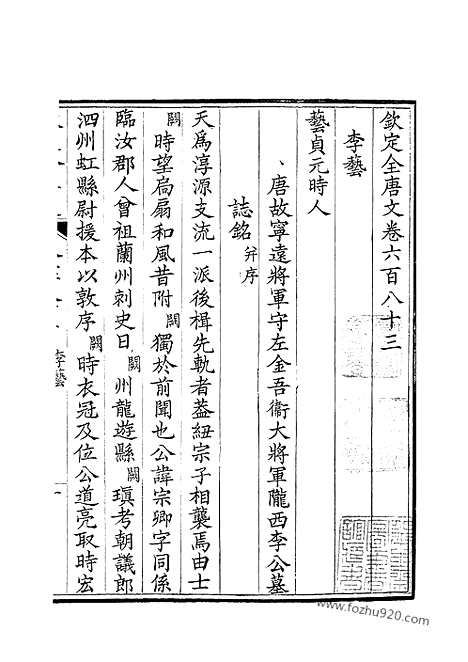 欽定全唐文卷六百八十三
李藝
藝貞元時人
、唐故寧遠將軍守左金吾衛大將軍隴西李公墓
誌銘并序
天為淳源支流一派後楫先軌者蓋紐宗子相襲焉由士
闕時望扃扇和風昔附闕獨於前聞也公諱宗卿字同係
臨汝郡人曾祖蘭州刺史日闕州龍遊縣闕瑱考朝議郎
泗州虹縣尉援本以敦序闕時衣冠及位公道亮取時宏
李藝
一
www.fozhu920.com